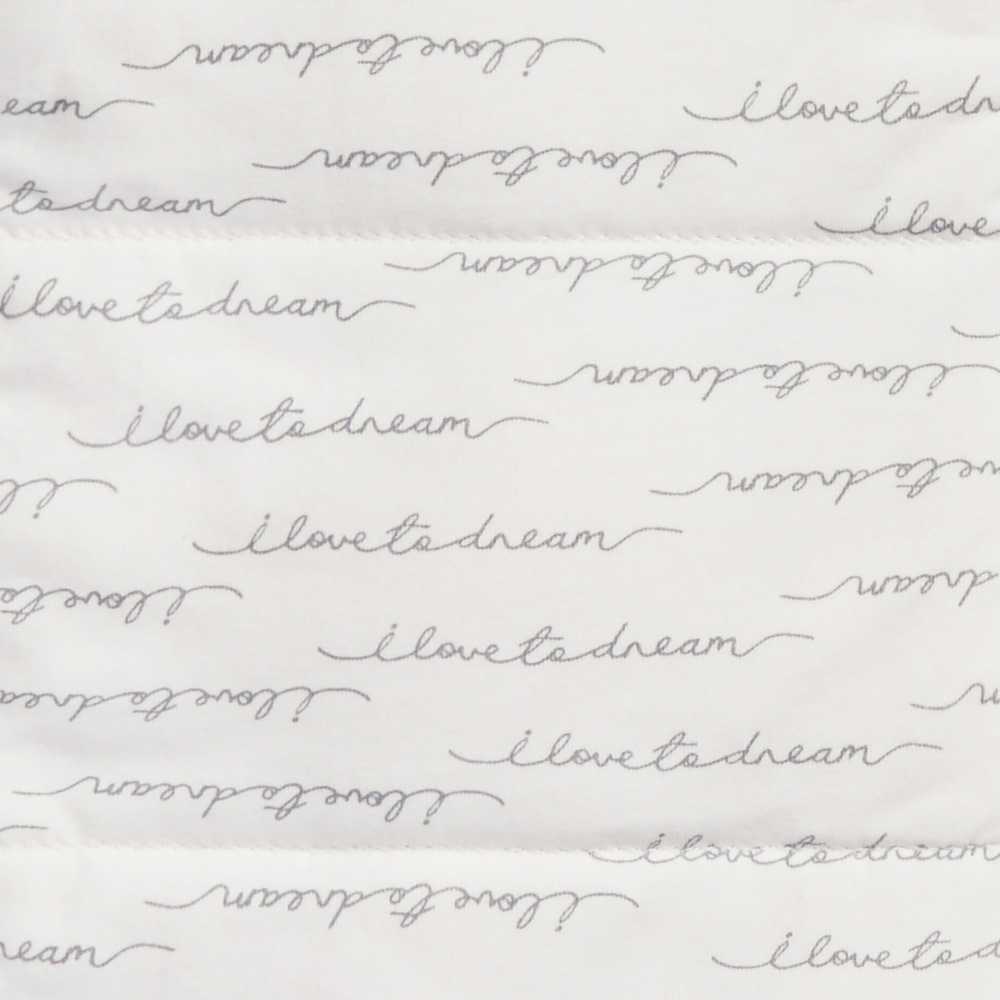 i love to dream
eam
i love to dr
i love to dream
to dream
i love
i love to dream
i love to dream
i love to dream
i love to dream
i l
ve to dream
i love to dream
i love to
dream
i love to dream
i love to drea
i love to dream
i love to dream
i love to dream
i love to dream
ream
i love to d